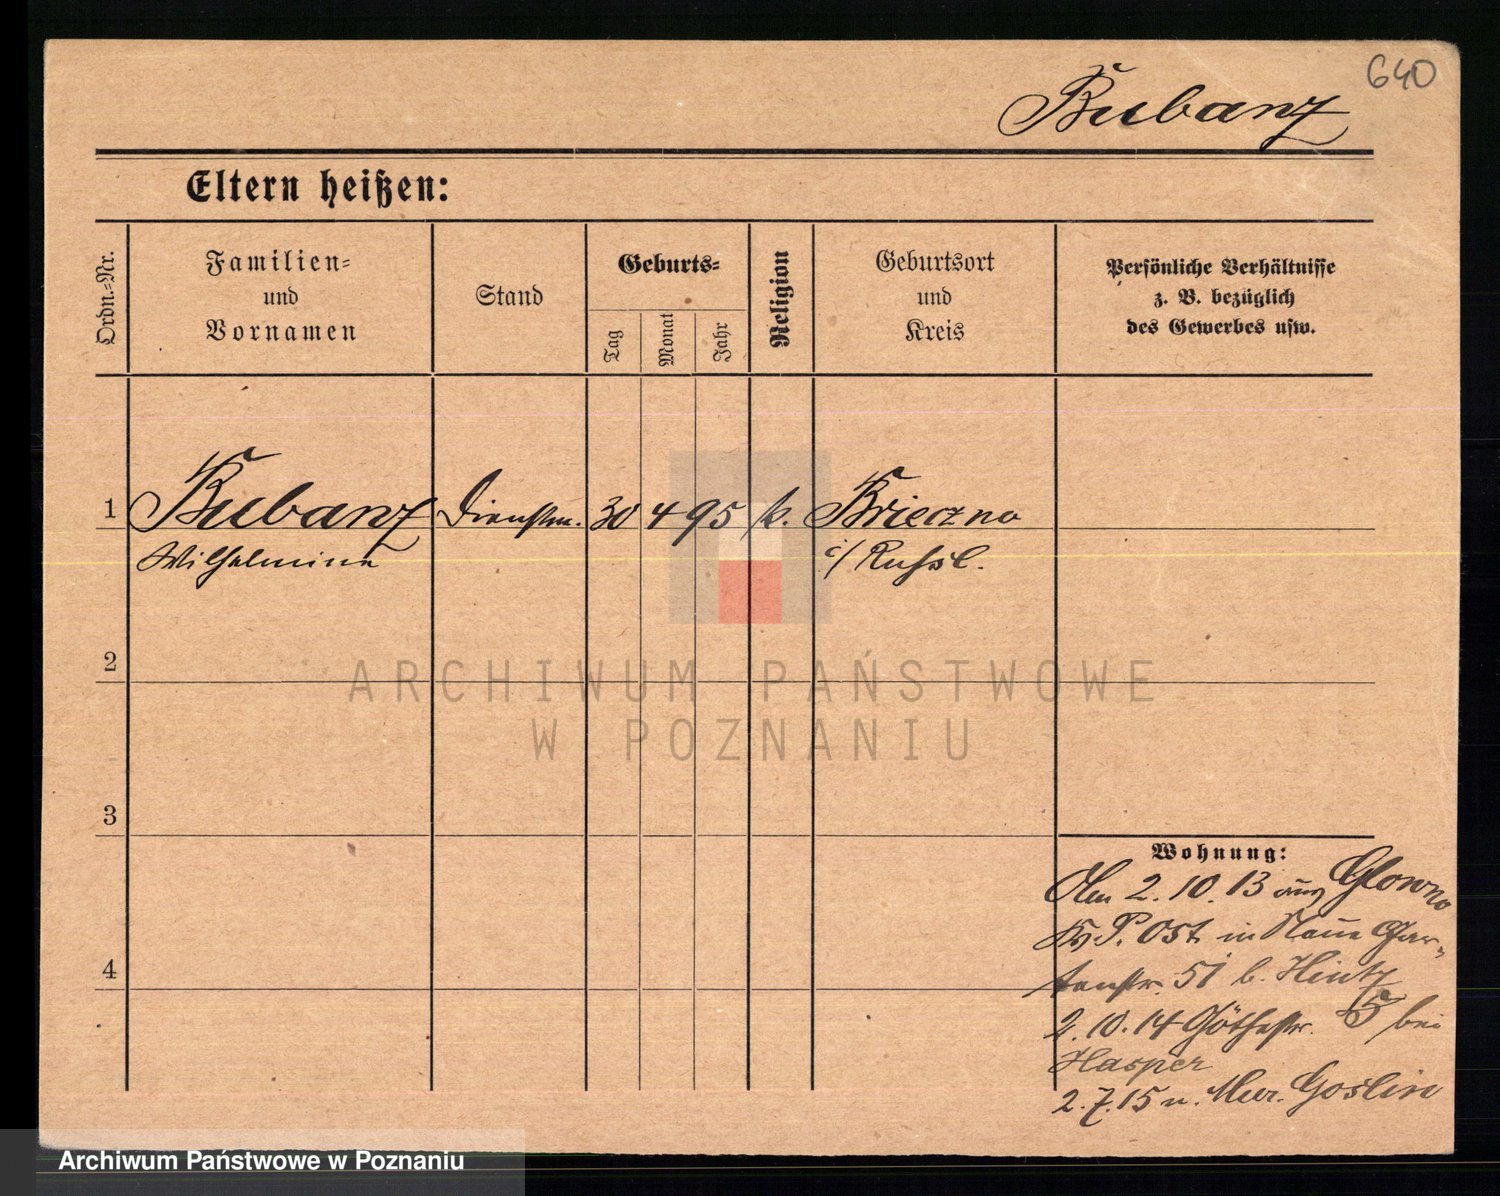 640
Bubanz
Eltern heißen:
Ordn.-Nr.
Familien-
und
Vornamen
Stand
Geburts-
Tag
Monat
Jahr
Religion
Geburtsort
und
Kreis
Persönliche Verhältnisse
z. B. bezüglich
des Gewerbes usw.
1 Bubanz Dienstm. 30 4 95 k. Brieczno
Wilhelmine i/ Russl.
2
3
4
Wohnung:
Am 2.10.13 aus Glowno
Kr. P. Ost in Neue Gar-
tenstr. 51 b. Hintz
2.10.14 Göthestr. 5 bei
Hasper
2.7.15 n. Mur. Goslin
ARCHIWUM PAŃSTWOWE
W POZNANIU
Archiwum Państwowe w Poznaniu